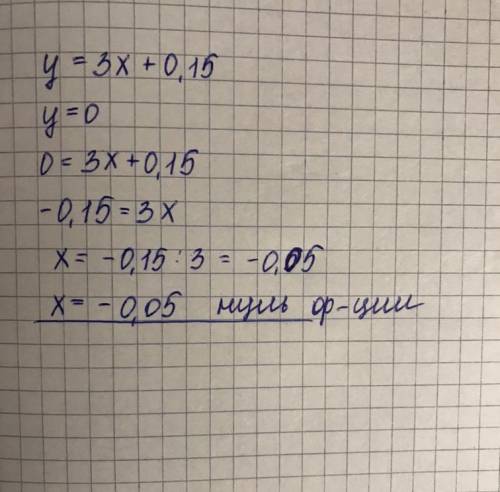 y = 3x + 0,15
y = 0
0 = 3x + 0,15
-0,15 = 3x
x = -0,15 : 3 = -0,05
x = -0,05 нуль ф-ции